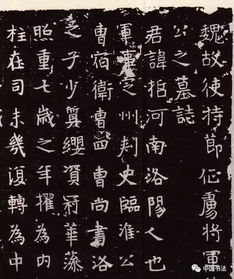 魏故使持節征虜將軍
公之墓誌
君諱河南洛陽人也
軍事州刺史臨淮公
曹宿衛曹四曹尚書洛
之子少纓資冠華藻
照重七歲之年擢為內
柱在司未幾復轉為中
中国书法